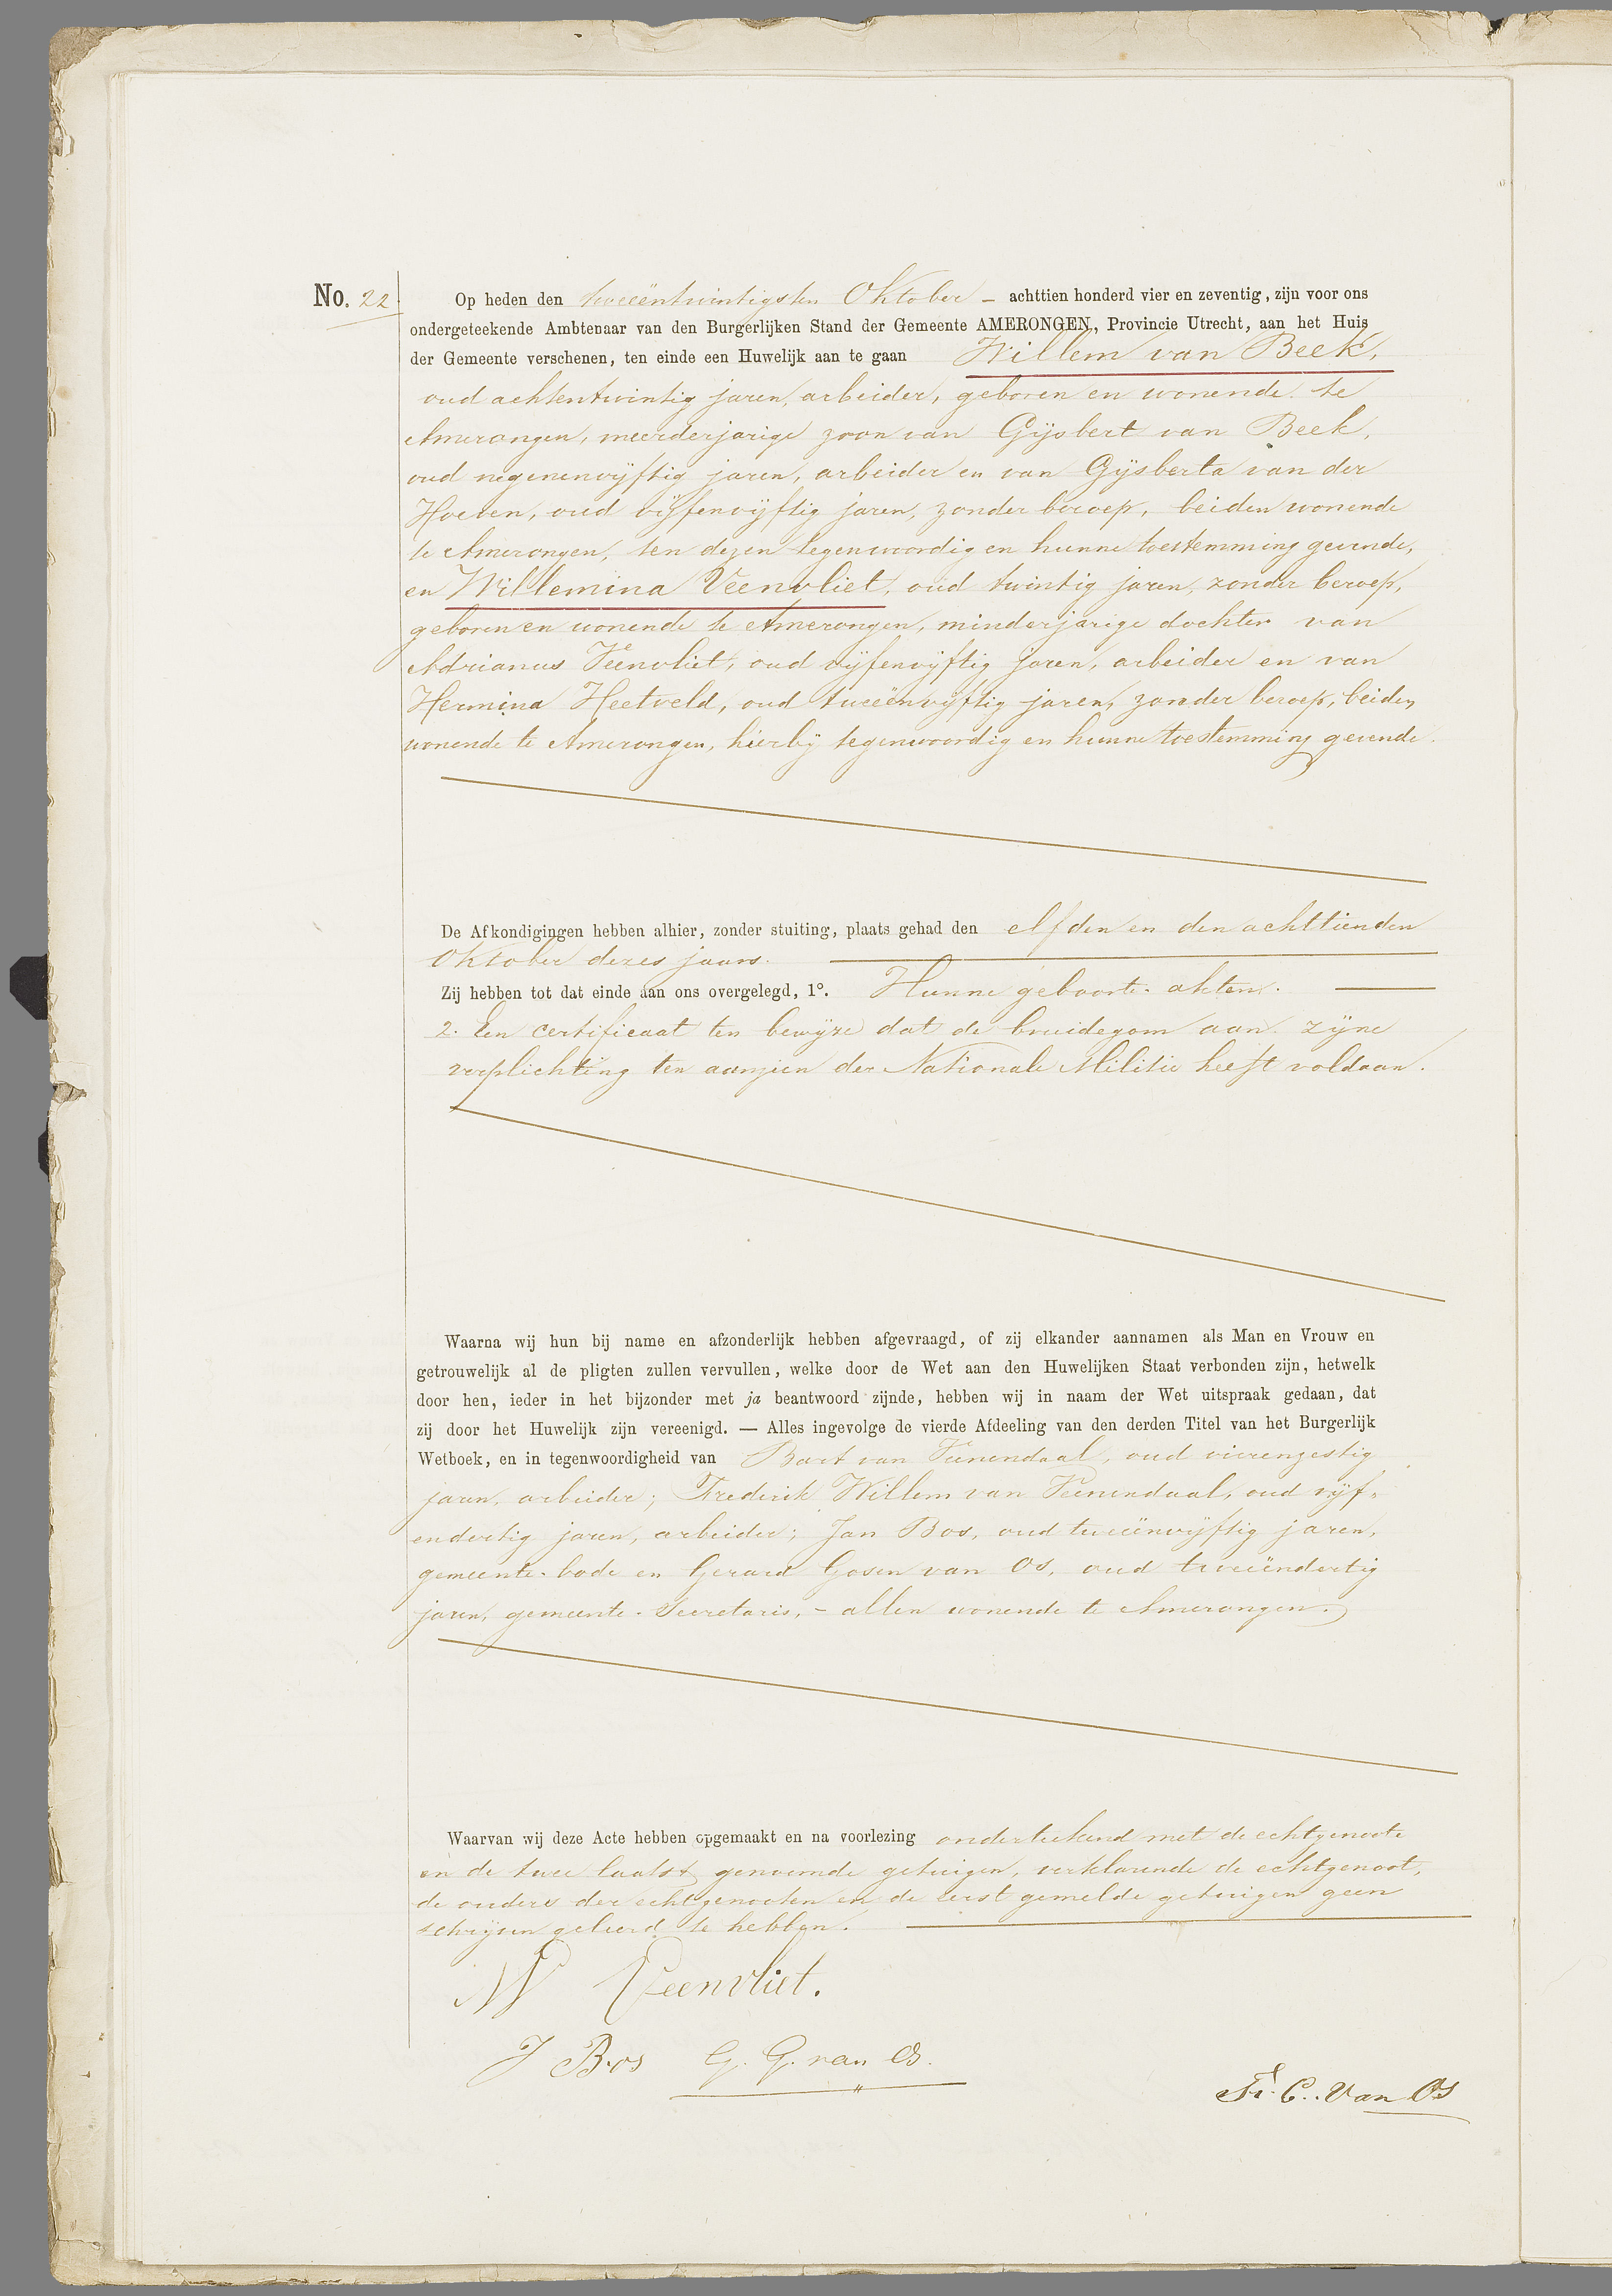 No. 22.
Op heden den tweeëntwintigsten Oktober – achttien honderd vier en zeventig, zijn voor ons
ondergeteekende Ambtenaar van den Burgerlijken Stand der Gemeente AMERONGEN, Provincie Utrecht, aan het Huis
der Gemeente verschenen, ten einde een Huwelijk aan te gaan Willem van Beek,
oud achtentwintig jaren, arbeider, geboren en wonende te
Amerongen, meerderjarige zoon van Gijsbert van Beek,
oud negenenvijftig jaren, arbeider en van Gijsberta van der
Hoeven, oud vijfenvijftig jaren, zonder beroep, beiden wonende
te Amerongen, ten dezen tegenwoordig en hunne toestemming gevende,
en Willemina Veenvliet, oud twintig jaren, zonder beroep,
geboren en wonende te Amerongen, minderjarige dochter van
Adrianus Veenvliet, oud vijfenvijftig jaren, arbeider en van
Hermina Heetveld, oud tweeënvijftig jaren, zonder beroep, beiden
wonende te Amerongen, hierbij tegenwoordig en hunne toestemming gevende.
De Afkondigingen hebben alhier, zonder stuiting, plaats gehad den elfden en den achttienden
Oktober dezes jaars.
Zij hebben tot dat einde aan ons overgelegd, 1°. Hunne geboorte-akten.
2. Een certificaat ten bewijze dat de bruidegom aan zijne
verplichting ten aanzien der Nationale Militie heeft voldaan.
Waarna wij hun bij name en afzonderlijk hebben afgevraagd, of zij elkander aannamen als Man en Vrouw en
getrouwelijk al de pligten zullen vervullen, welke door de Wet aan den Huwelijken Staat verbonden zijn, hetwelk
door hen, ieder in het bijzonder met ja beantwoord zijnde, hebben wij in naam der Wet uitspraak gedaan, dat
zij door het Huwelijk zijn vereenigd. — Alles ingevolge de vierde Afdeeling van den derden Titel van het Burgerlijk
Wetboek, en in tegenwoordigheid van Bart van Veenendaal, oud vierenzestig
jaren, arbeider; Frederik Willem van Veenendaal, oud vijf-
endertig jaren, arbeider; Jan Bos, oud tweeënvijftig jaren,
gemeente-bode en Gerard Gosen van Os, oud tweeëndertig
jaren, gemeente-Secretaris, – allen wonende te Amerongen.
Waarvan wij deze Acte hebben opgemaakt en na voorlezing onderteekend met de echtgenoote
en de twee laatst genoemde getuigen, verklarende de echtgenoot,
de ouders der echtgenooten en de eerst gemelde getuigen geen
schrijven geleerd te hebben.
W Veenvliet.
J Bos G. G. van Os.
Fr. C. Van Os